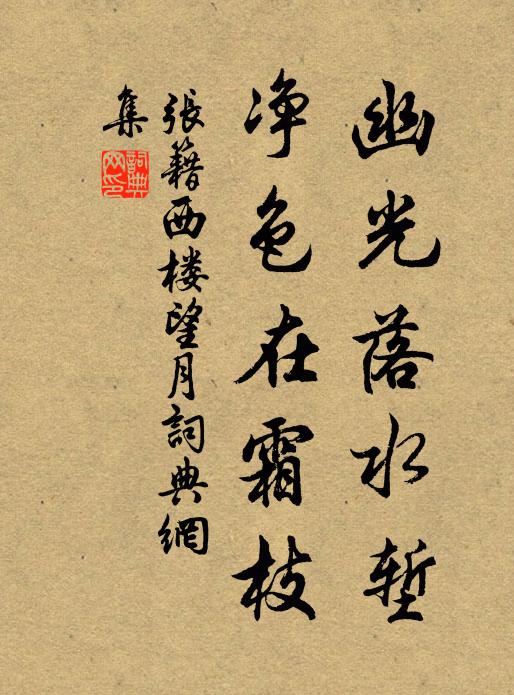 幽光落水塹
净色在霜枝
張籍西楼望月詞典網
集
詞典
网印